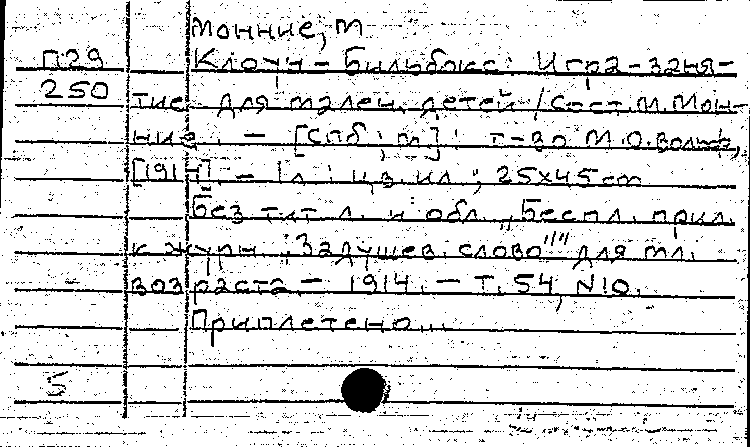 Монние, М
П29 Клоун-Бильбоке: Игра-заня-
250 тие для мален. детей / Сост. М. Мон-
ние. - [СПб; М]: т-во М.О. Вольф,
[1914]. - 1л: цв. ил.; 25х45 см
Без тит л. и обл. "Беспл. прил.
к журн. "Задушев. слово"" для мл.
возраста. - 1914. - Т. 54, N10.
Приплетено...
5